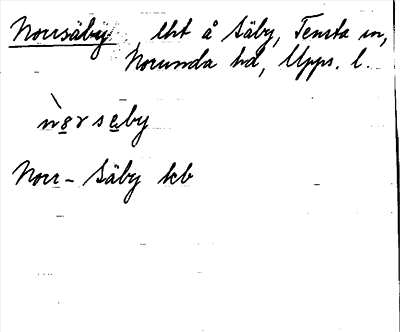 Norrsäby lht å Säby, Tensta sn,
Norunda hd, Upps. l.
nòrsəby
Norr- Säby kb